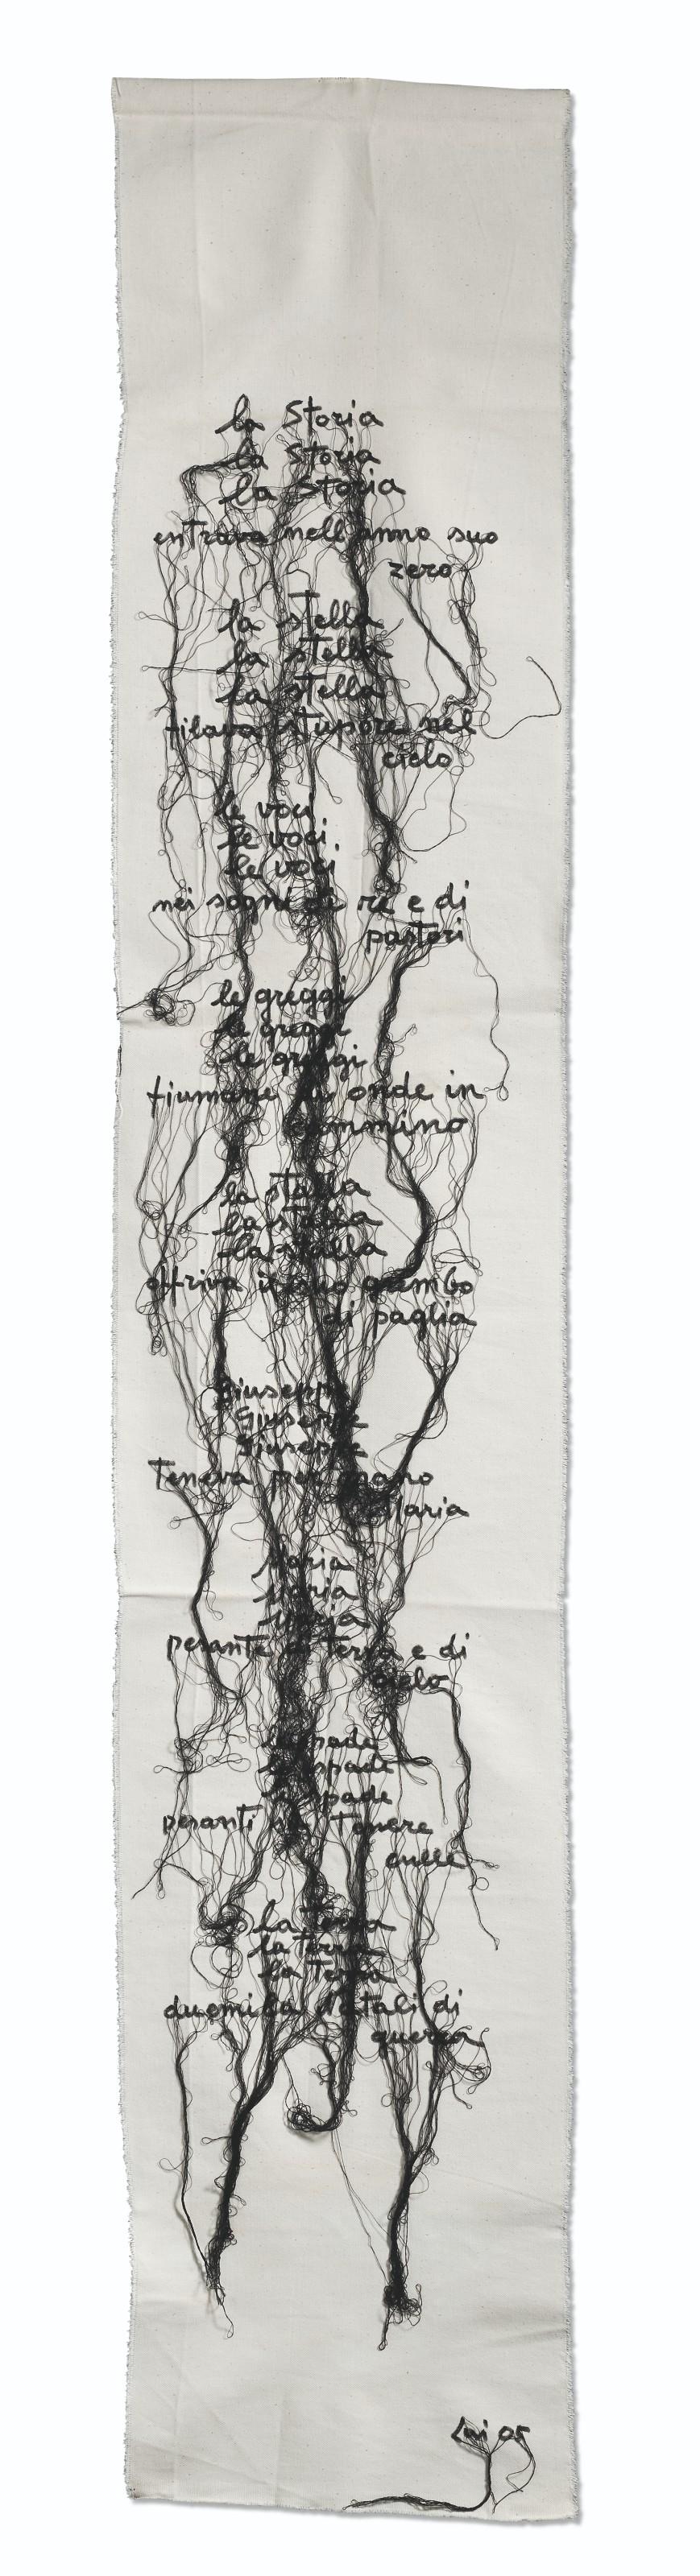 la Storia
la Storia
la Storia
entrava nell'anno suo
zero
la stella
la stella
la stella
filava stupore nel
cielo
le voci
le voci
le voci
nei sogni di re e di
pastori
le greggi
le greggi
le greggi
fiumane di onde in
cammino
la stalla
la stalla
la stalla
offriva il suo grembo
di paglia
Giuseppe
Giuseppe
Giuseppe
Teneva per mano
Maria
Maria
Maria
Maria
pesante di Terra e di
cielo
le spade
le spade
le spade
pesanti su Tenere
culle
la Terra
la Terra
la Terra
duemila Natali di
guerra
Lai 05